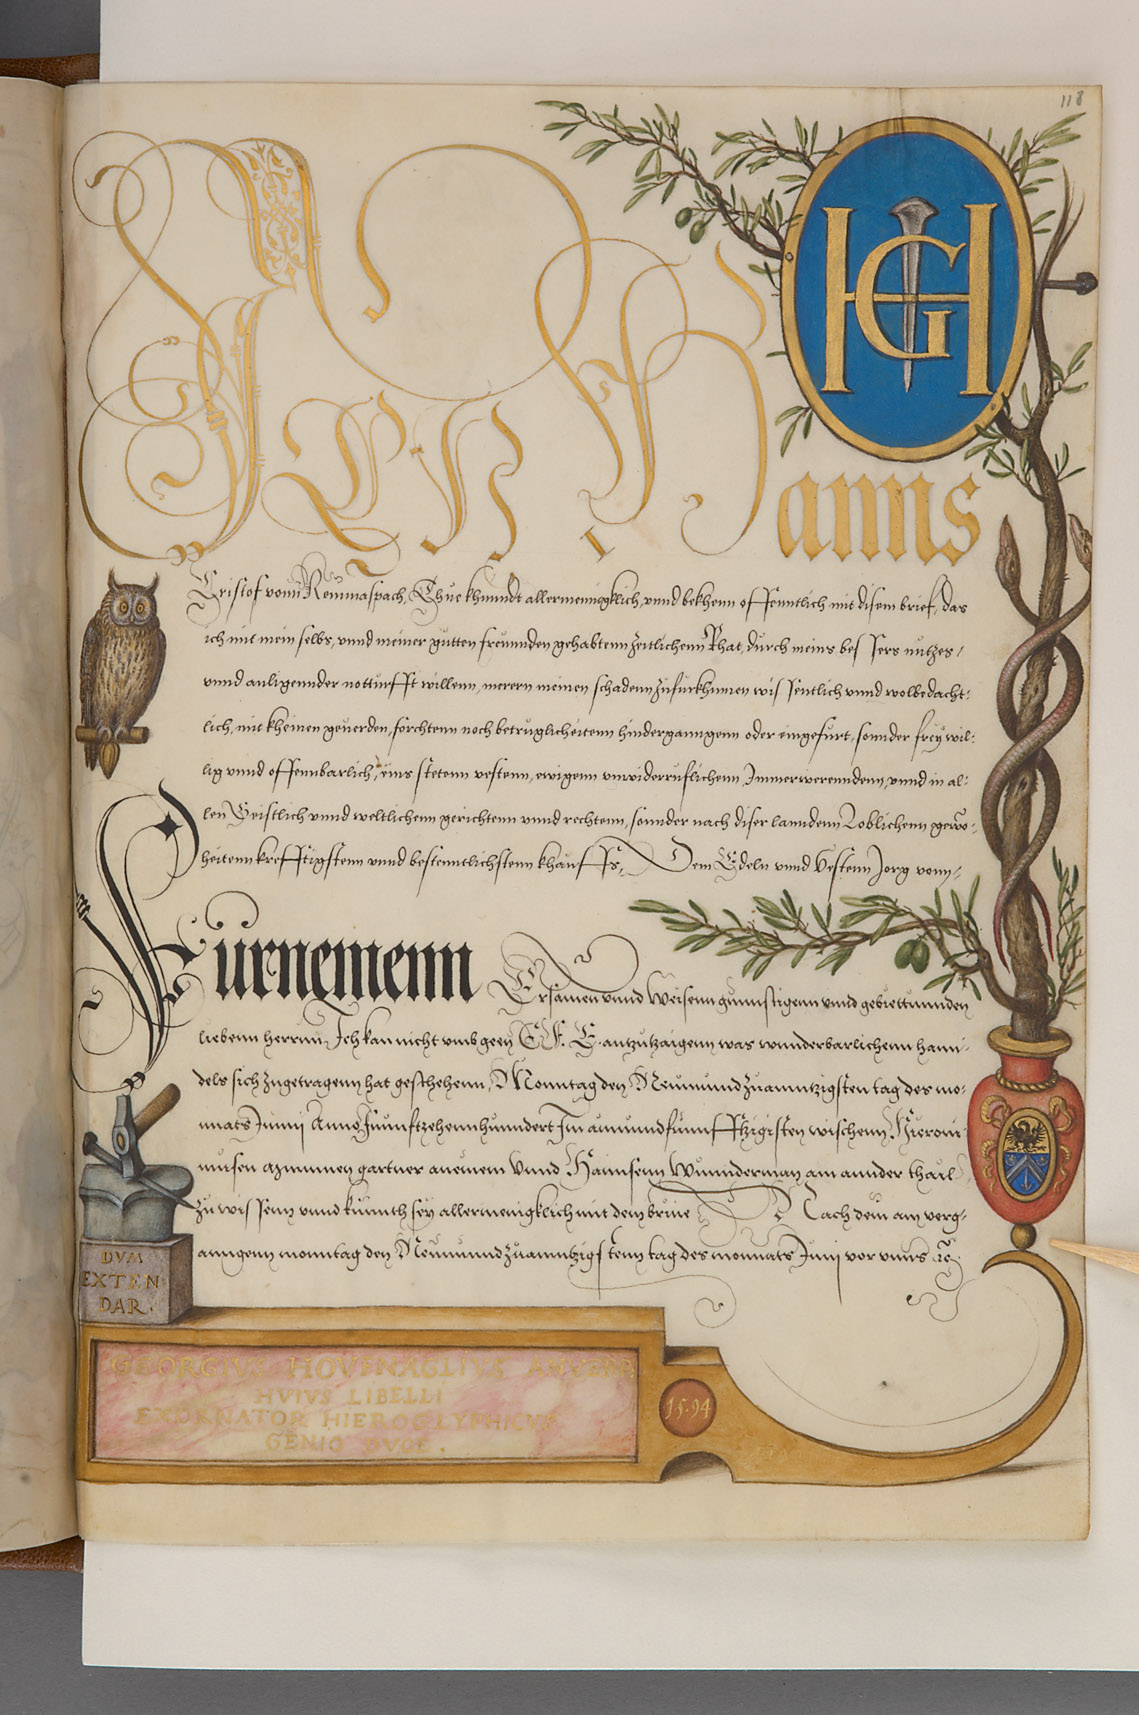 118
HG
Ich Hanns
Cristof vonn Remmaspach, Thue khundt allermenigklich, vnnd bekhenn offenntlich mit disem brief, das
ich mit mein selbs, vnnd meiner gutten freunnden gehabtenn zeitlichenn Rhat, durch meins bessers nutzes,
vnnd anligennder notturfft willenn, merern meinen schadenn zufurkhumen wissentlich vnnd wolbedacht-
lich, mit kheinen geuerden, forchtenn noch betruglicheitenn hindergangenn oder eingefurt, sonnder freywil-
lig vnnd offennbarlich, eins stetenn vestenn, ewigenn vnwiderruflichenn, Immerwerenndenn, vnnd in al-
len Geistlich vnnd weltlichenn gerichtenn vnnd rechtenn, sonnder nach diser lanndenn Loblichenn gewo-
heitenn krefftigstenn vnnd bestenntlichstenn khauffs, Dem Edeln vnnd Vestenn Jorg vonn
Furnemenn Ersamen vnnd Weisenn gunnstigenn vnnd gebiettunnden
liebenn herrnn, Ich kan nicht vmbgeen E. E. antzutzaigenn was wunderbarlichenn hann-
dels sich zugetragenn hat geschehenn, Monntag den Neunundzuanntzigsten tag des mo-
nnats Junii Anno Funftzehennhunndert Im ainundfunfftzigisten wischenn Hieroni-
musen gartner aneinem Vnnd Hannsenn Wunnderman am annder thail
Zu wissenn vnnd kunnth sey allermenigklich mit dem brive Nach dem am verg-
anngenn monntag den Neunundzuanntzigstenn tag des monnats Juni vor vnns
DVM
EXTEN
DAR.
GEORGIVS HOVFNAGLIVS ANVERP
HVIVS LIBELLI
EXORNATOR HIEROGLYPHICVS
GENIO DVCE.
15.94